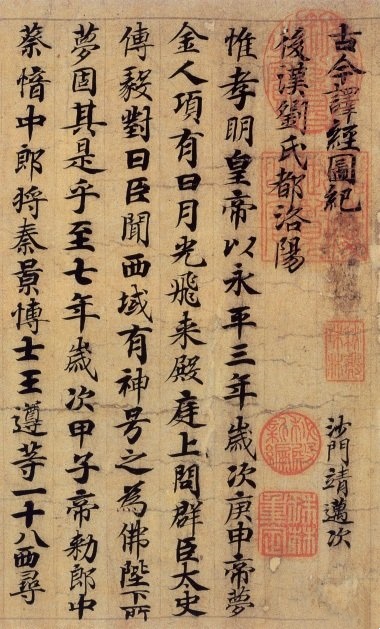 古今譯經圖紀
沙門靖邁次
後漢劉氏都洛陽
惟孝明皇帝以永平三年歲次庚申帝夢
金人項有日月光飛来殿庭上問群臣太史
傅毅對曰臣聞西域有神号之為佛陛下所
夢固其是乎至七年歲次甲子帝勅郎中
蔡愔中郎將秦景愽士王遵等一十八西尋